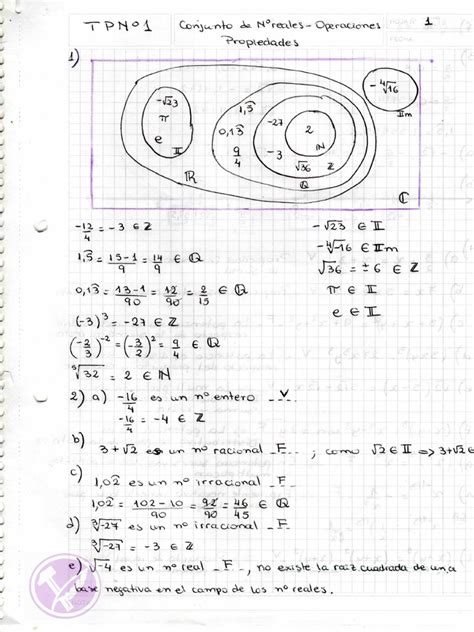 TPNº1 Conjunto de Nº reales - Operaciones 1
Propiedades
1)
-√23
π
e
II
1,5̂
0,13̂
9/4
-27
-3
2
IN
√36
Z
Q
IR
-∜16
IIm
C
-12/4 = -3 ∈ Z
-√23 ∈ II
1,5̂ = 15-1/9 = 14/9 ∈ Q
-∜-16 ∈ IIm
0,13̂ = 13-1/90 = 12/90 = 2/15 ∈ Q
√36 = ±6 ∈ Z
(-3)³ = -27 ∈ Z
π ∈ II
(-2/3)⁻² = (-3/2)² = 9/4 ∈ Q
e ∈ II
⁵√32 = 2 ∈ IN
2) a) -16/4 es un nº entero _V_
-16/4 = -4 ∈ Z
b)
3+√2 es un nº racional _F_ ; como √2 ∈ II ⇒ 3+√2 ∈
c)
1,02̂ es un nº irracional _F_
1,02̂ = 102-10/90 = 92/90 = 46/45 ∈ Q
d) ∛-27 es un nº irracional _F_
∛-27 = -3 ∈ Z
e) √-4 es un nº real _F_, no existe la raíz cuadrada de una
base negativa en el campo de los nº reales.